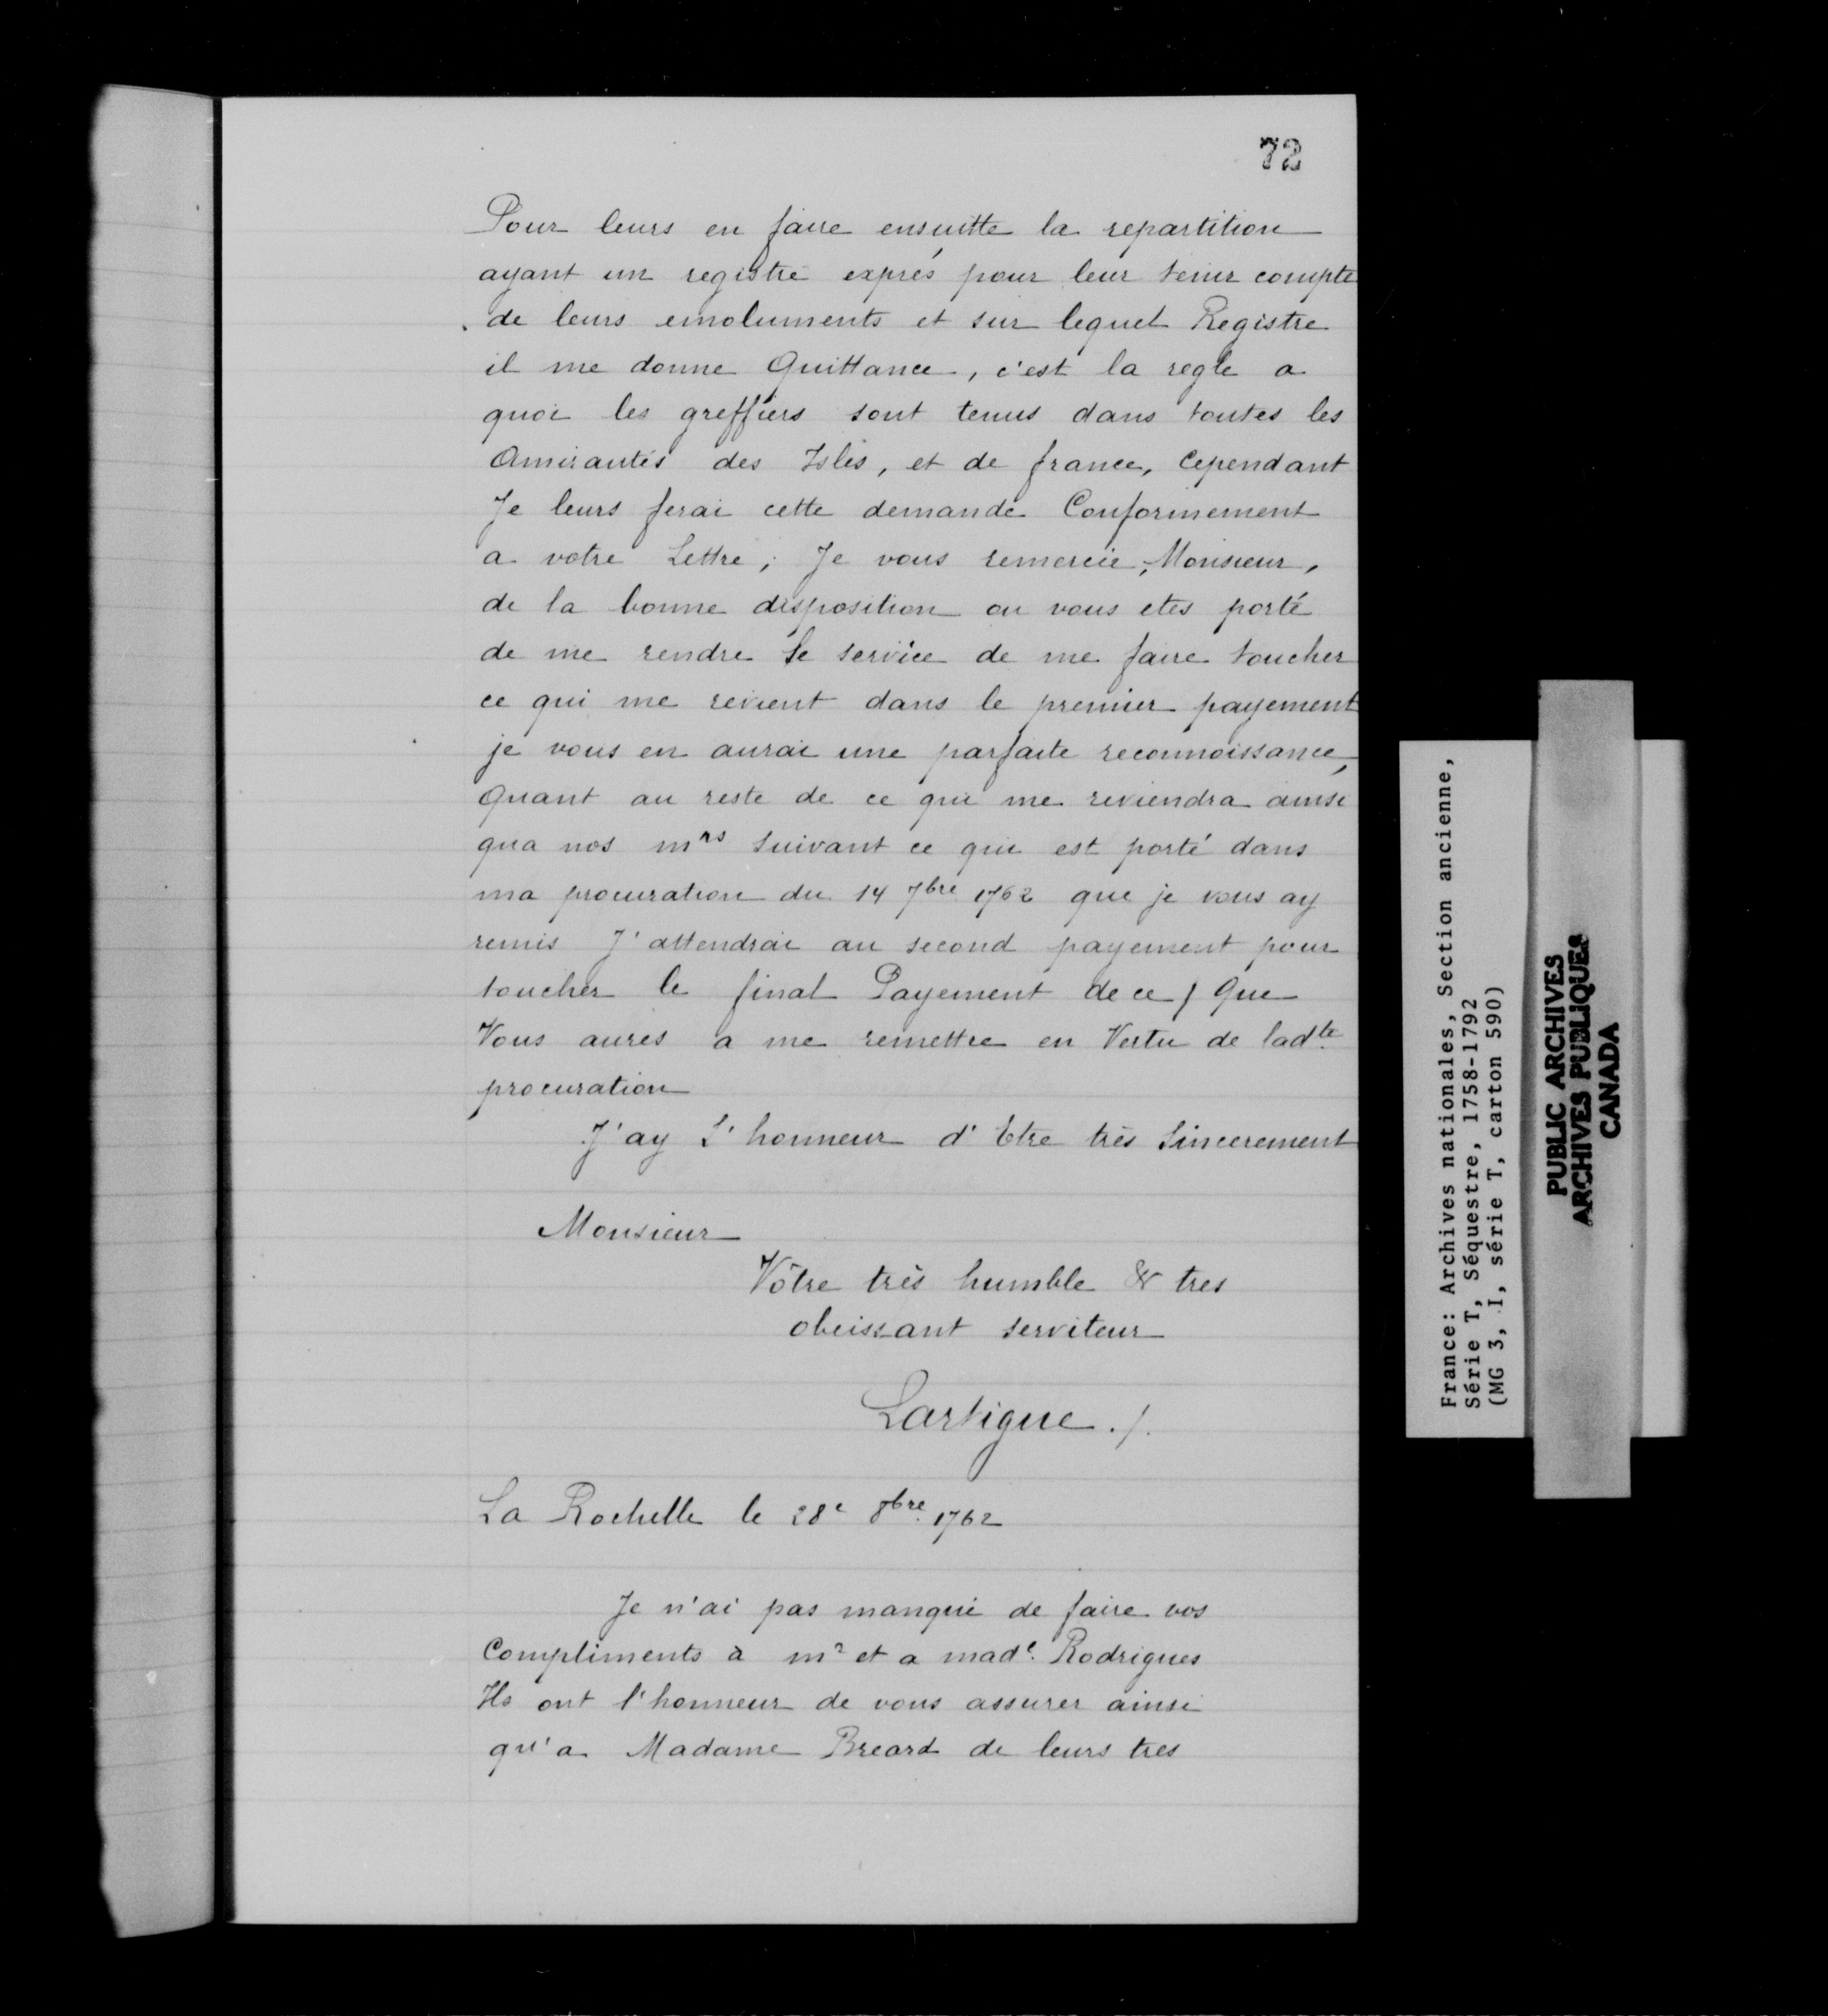 72
Pour leurs en faire ensuitte la repartition
ayant un registre exprés pour leur tenir compte
de leurs emoluments et sur lequel Registre
il me donne Quittance, c'est la regle a
quoi les greffiers sont tenus dans toutes les
Amirautés des Isles, et de france, Cependant
Je leurs ferai cette demande Conformement
a votre Lettre; Je vous remercie, Monsieur,
de la bonne disposition ou vous etes porté
de me rendre le service de me faire toucher
ce qui me revient dans le premier payement
je vous en aurai une parfaite reconnoissance,
Quant au reste de ce qui me reviendra ainsi
qua nos mrs suivant ce qui est porté dans
ma procuration du 14 7bre 1762 que je vous ay
remis J'attendrai au second payement pour
toucher le final Payement de ce / Que
Vous aures a me remettre en Vertu de ladte
procuration
J'ay L'honneur d'Etre très Sincerement
Monsieur
Vôtre très humble & tres
obeissant serviteur
Lartigue ./.
La Rochelle le 28e 8bre. 1762
Je n'ai pas manqué de faire vos
Compliments à mr et a made. Rodrigues
Ils ont l'honneur de vous assurer ainsi
qu'a Madame Breard de leurs tres
France: Archives nationales, Section ancienne,
Série T, Séquestre, 1758-1792
(MG 3, I, série T, carton 590)
PUBLIC ARCHIVES
ARCHIVES PUBLIQUES
CANADA